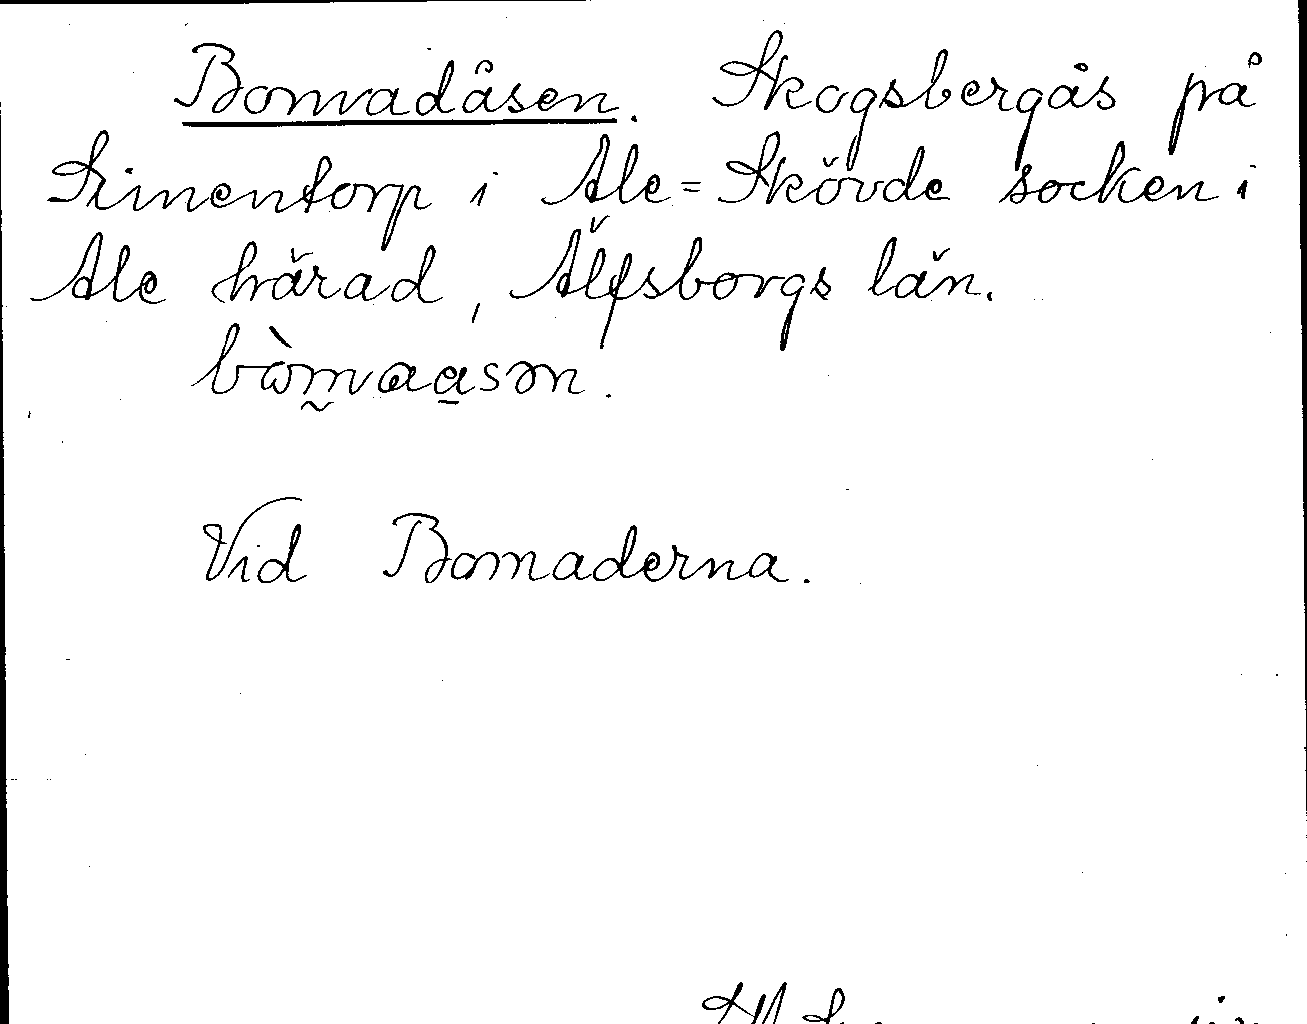 Bomadåsen. Skogsbergås på
Simentorp i Ale=Skövde socken i
Ale härad, Älfsborgs län.
bòmaasən.
Vid Bomaderna.